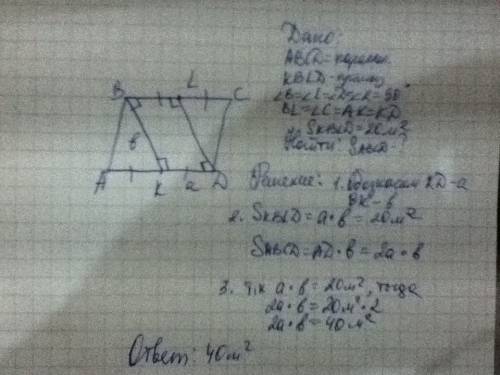 Дано:
ABCD - паралл.
KBLD - прямоуг
∠B=∠L=∠D=∠K=90°
BL=LC=AK=KD
S KBLD = 20м²
Найти: S ABCD - ?
B L C
в
A K a D
Решение: 1. Обозначим KD - a
BK - в
2. S KBLD = a · в = 20м²
S ABCD = AD · в = 2a · в
3. т.к a · в = 20м², тогда
2a · в = 20м² · 2
2a · в = 40м²
Ответ: 40м²